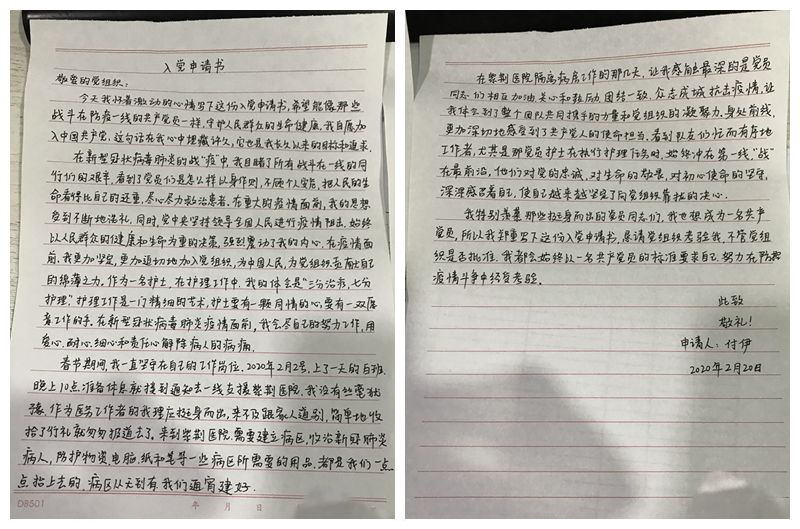 入党申请书
敬爱的党组织：
今天我怀着激动的心情写下这份入党申请书，希望能像那些
战斗在防疫一线的共产党员一样，守护人民群众的生命健康。我自愿加
入中国共产党，这句话在我心中埋藏许久，它也是我长久以来的目标和追求。
在新型冠状病毒肺炎的战“疫”中，我目睹了所有战斗在一线的同
行们的艰辛，看到了党员们是怎么样以身作则，不顾个人安危，把人民的生
命看得比自己的还重，尽心尽力救治患者。在重大的疫情面前，我的思想
受到不断地洗礼。同时，党中央坚持领导全国人民进行疫情阻击，始终
以人民群众的健康和生命为重的决策，强烈震动了我的内心。在疫情面
前，我更加坚定，更加迫切地加入党组织，为中国人民，为党组织贡献出自己
的绵薄之力。作为一名护士，在护理工作中，我的体会是“三分治疗，七分
护理”。护理工作是一门精细的艺术，护士要有一颗同情的心，要有一双愿
意工作的手。在新型冠状病毒肺炎疫情面前，我会尽自己的努力工作，用
爱心、耐心、细心和责任心解除病人的病痛。
春节期间，我一直坚守在自己的工作岗位。2020年2月2号，上了一天的白班，
晚上10点，准备休息就接到通知去一线支援紫荆医院，我没有丝毫犹
豫，作为医务工作者的我理应挺身而出，来不及跟家人道别，简单地收
拾了行礼就匆匆报道去了。来到紫荆医院，需要建立病区，收治新冠肺炎
病人，防护物资，电脑，纸和笔等一些病区所需要的用品，都是我们一点
点抬上去的，病区从无到有，我们通宵建好。
D8501 年 月 日
在紫荆医院隔离病房工作的那几天，让我感触最深的是党员
同志们相互加油、关心和鼓励，团结一致，众志成城抗击疫情，让
我体会到了整个团队共同携手的力量和党组织的凝聚力。身处前线，
更加深切地感受到了共产党人的使命担当。看到队友们忙而有序地
工作着，尤其是那党员护士在执行护理任务时，始终冲在第一线，“战”
在最前沿，他们对党的忠诚，对生命的敬畏，对初心使命的坚守，
深深感召着自己，使自己越来越坚定了向党组织靠拢的决心。
我特别羡慕那些挺身而出的党员同志们，我也想成为一名共产
党员，所以我郑重写下这份入党申请书，恳请党组织考验我，不管党组
织是否批准，我都会始终以一名共产党员的标准要求自己，努力在防控
疫情斗争中经受考验。
此致
敬礼！
申请人：付伊
2020年2月20日